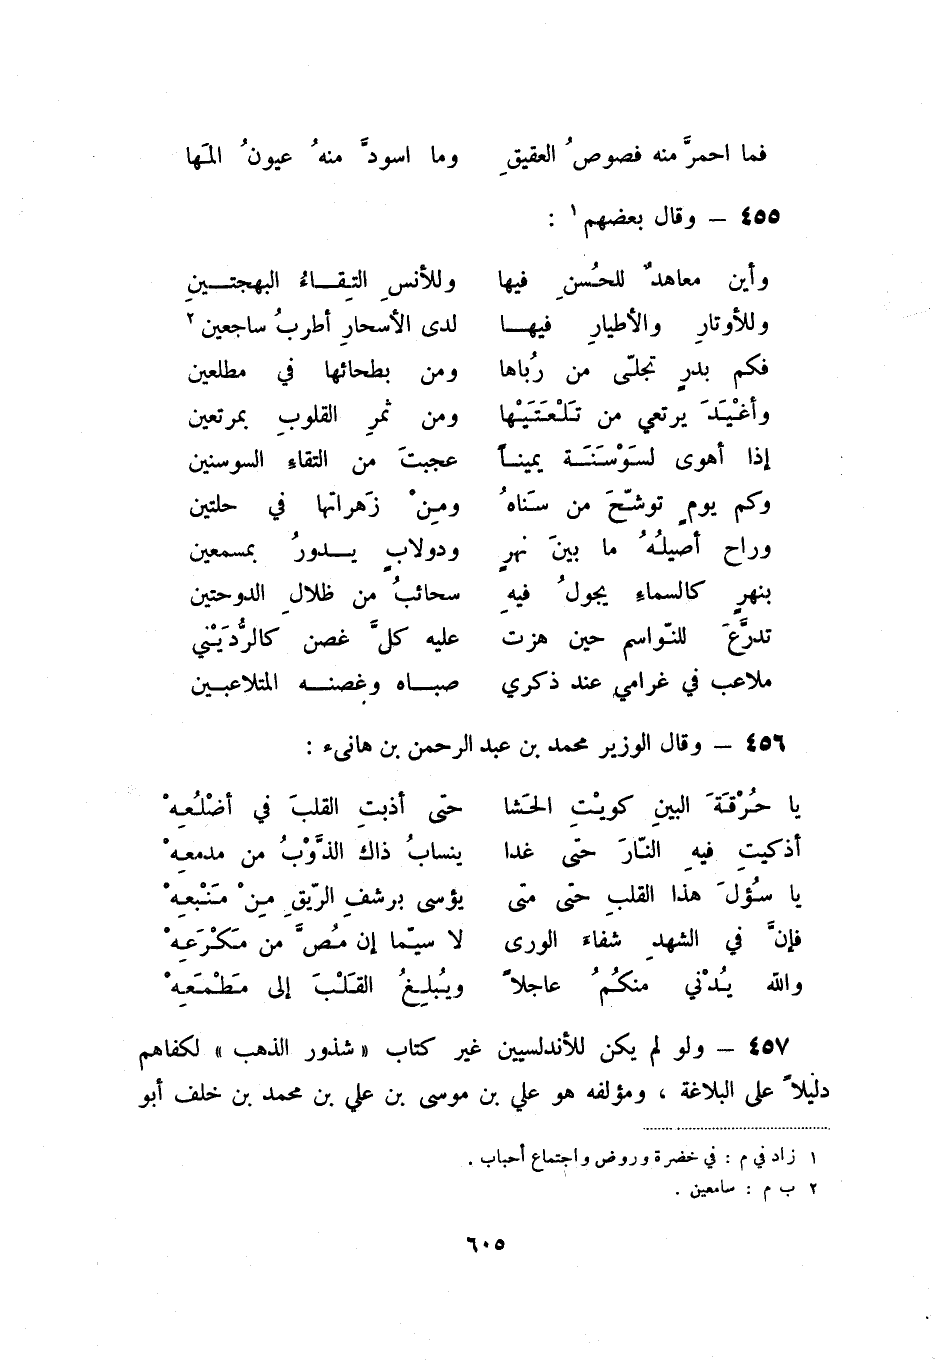 فما احمرَّ منه فصوصُ العقيقِ وما اسودَّ منهُ عيونُ المَها
٤٥٥ – وقال بعضهم ١ :
وأين معاهدٌ للحُسنِ فيها وللأنسِ التِقاءُ البهجتينِ
وللأوتارِ والأطيارِ فيها لدى الأسحارِ أطربُ ساجعين ٢
فكم بدرٍ تجلّى من رُباها ومن بطحائها في مطلعين
وأغْيَدَ يرتعي من تَلْعَتَيْها ومن ثمرِ القلوبِ بمرتعين
إذا أهوى لسَوْسَنَة يميناً عجبتَ من التقاءِ السوسنين
وكم يومٍ توشّحَ من سَناهُ ومِنْ زَهراتها في حلتين
وراح أصيلُهُ ما بينَ نهرٍ ودولابٍ يدورُ بمسمعين
بنهرٍ كالسماءِ يجولُ فيهِ سحائبُ من ظلالِ الدوحتين
تدرَّعَ للنّواسمِ حين هزت عليه كلَّ غصن كالرُّدَيْني
ملاعب في غرامي عند ذكري صباه وغصنه المتلاعبين
٤٥٦ – وقال الوزير محمد بن عبد الرحمن بن هانىء :
يا حُرْقَةَ البينِ كويْتِ الحَشا حتى أذبتِ القلبَ في أضْلُعِهْ
أذكيتِ فيهِ النّارَ حتى غدا ينسابُ ذاك الذَّوْبُ من مدمعِهْ
يا سُؤلَ هذا القلبِ حتى متى يؤسى برشفِ الرّيقِ مِنْ مَنْبعِهْ
فإنَّ في الشهدِ شفاءَ الورى لا سيّما إن مُصَّ من مَكْرَعِهْ
والله يُدْني منكمُ عاجلاً ويُبلِغُ القَلْبَ إلى مَطْمَعِهْ
٤٥٧ – ولو لم يكن للأندلسيين غير كتاب « شذور الذهب » لكفاهم
دليلاً على البلاغة ، ومؤلفه هو علي بن موسى بن علي بن محمد بن خلف أبو
١ زاد في م : في خضرة وروض واجتماع أحباب .
٢ ب م : سامعين .
٦٠٥